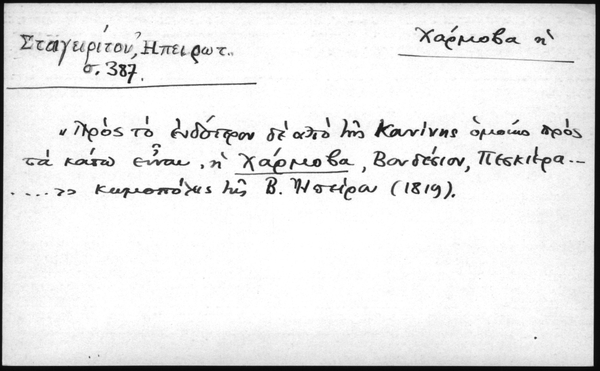 Σταγειρίτου, Ηπειρωτ..
σ. 387.
Χάρμοβα ἡ
"Πρὸς τὸ ἐνδότερον δὲ ἀπὸ τῆς Κανίνης ὁμοίως πρὸς
τὰ κάτω εἶναι, ἡ Χάρμοβα, Βονδέσιον, Πεσκιέρα...
....>> κωμοπόλεις τῆς Β. Ἠπείρου (1819).